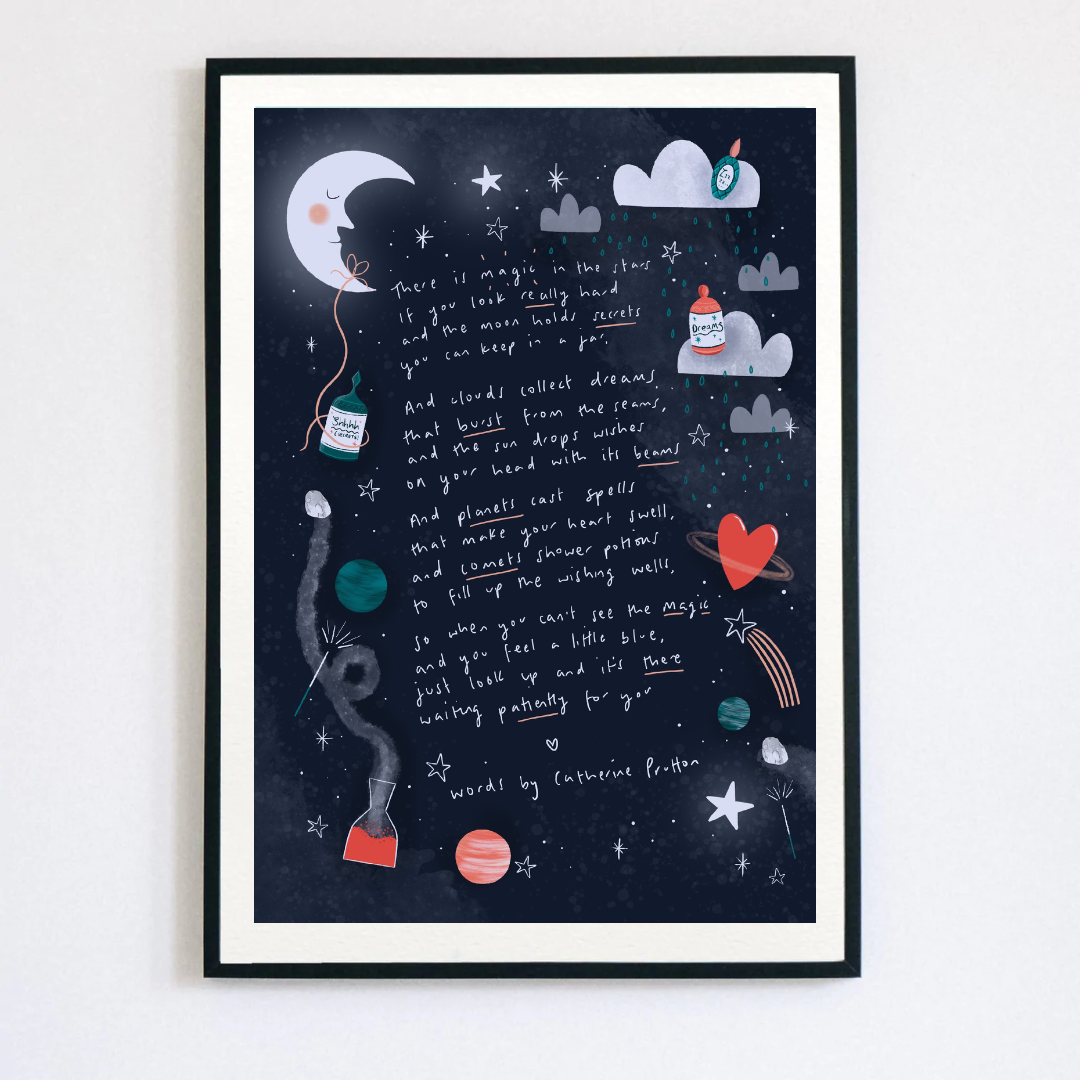 There is magic in the stars
If you look really hard
and the moon holds secrets
you can keep in a jar.
And clouds collect dreams
that burst from the seams,
and the sun drops wishes
on your head with its beams
And planets cast spells
that make your heart swell,
and comets shower potions
to fill up the wishing wells,
so when you can't see the magic
and you feel a little blue,
just look up and it's there
waiting patiently for you
words by Catherine Prutton
Shhhh
(secrets)
Dreams